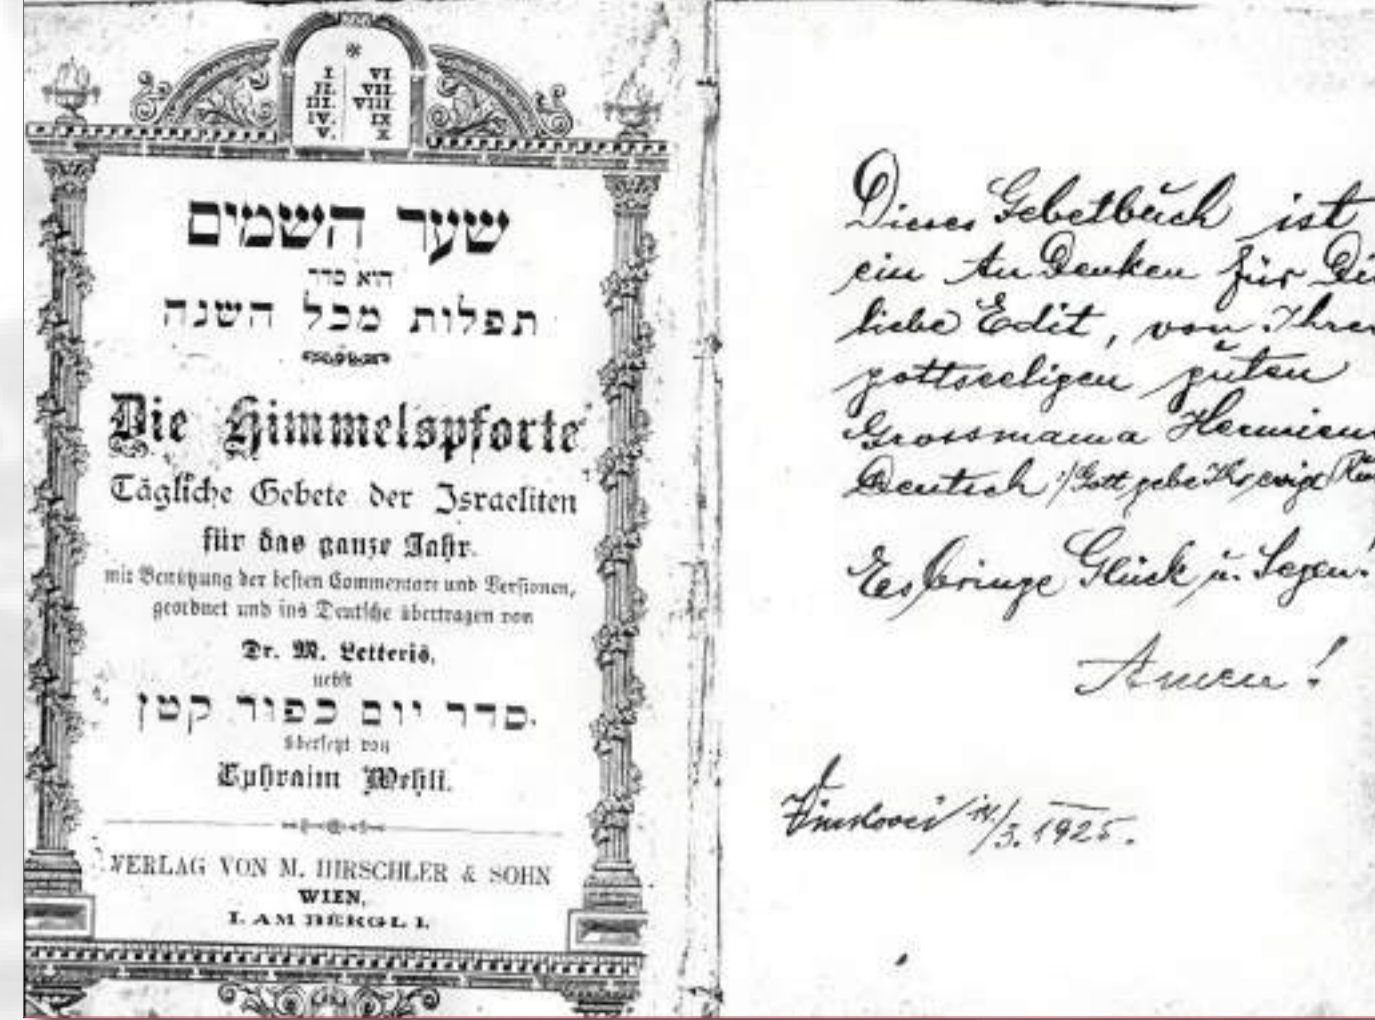 I. VI.
II. VII.
III. VIII.
IV. IX
V. X
שער השמים
הוא סדר
תפלות מכל השנה
Die Himmelspforte
Tägliche Gebete der Israeliten
für das ganze Jahr.
mit Benützung der besten Commentare und Versionen,
geordnet und ins Deutsche übertragen von
Dr. M. Letteris,
nebst
סדר יום כפור קטן.
übersetzt von
Ephraim Wehli.
VERLAG VON M. HIRSCHLER & SOHN
WIEN,
I. AM BERGL 1.
Dieses Gebetbuch ist
ein An Denken für
liebe Edit, von
gottseeligen guten
Grossmama
Deutsch :/ Gott gebe Ihr ewige
Es bringe Glück u. Segen!
Amen!
Vinkovci /3. 1925.